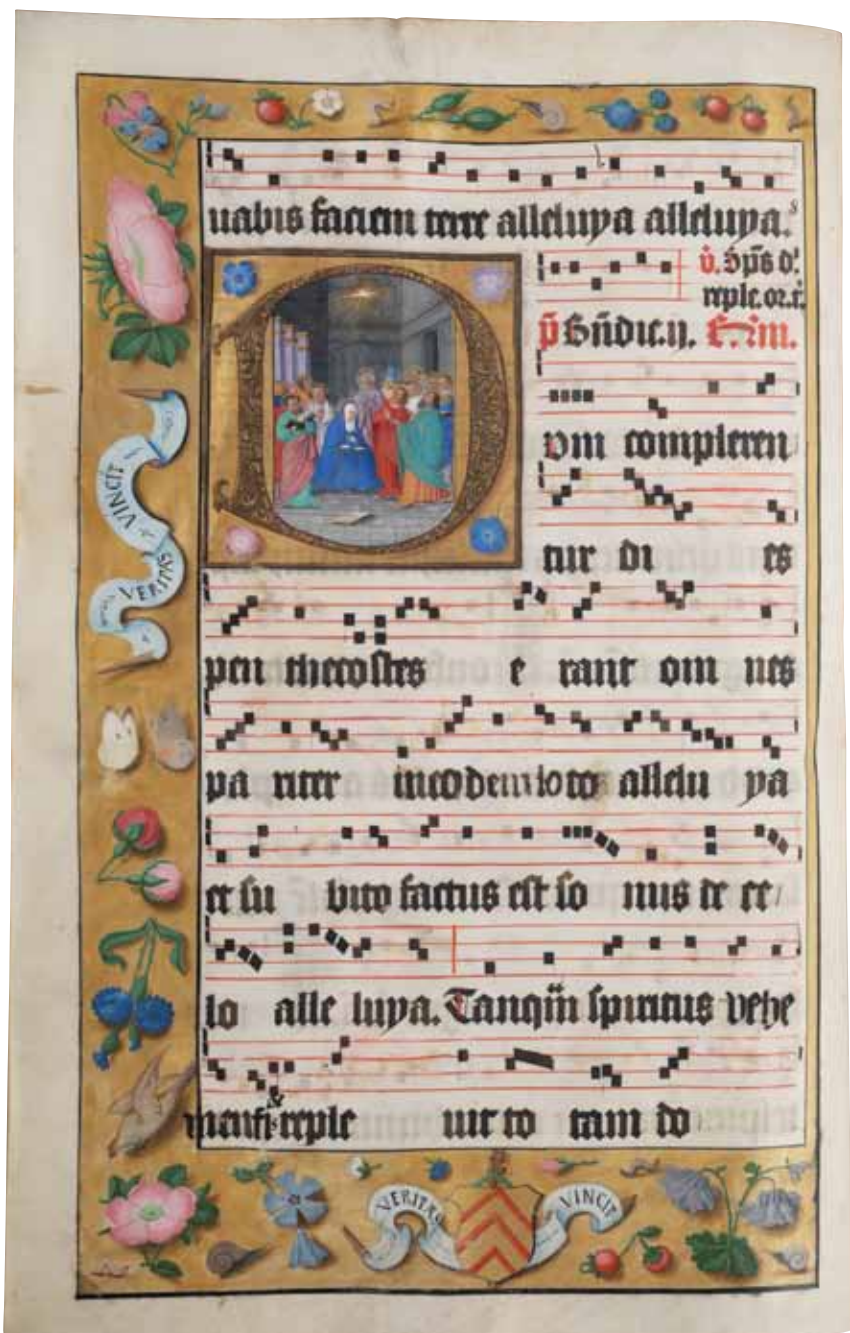 uabis faciem terre alleluya alleluya.
v. Sp̄us d.
reple. or. r.
p̄ Bn̄dic. ij.
Dum compleren
tur di es
pen thecostes e rant om nes
pa riter allelu ya
et su bito factus est so nus de ce
lo alle luya. Tanq̄m spiritus vehe
reple uit to tam do
VINCIT
VERITAS
VERITAS VINCIT